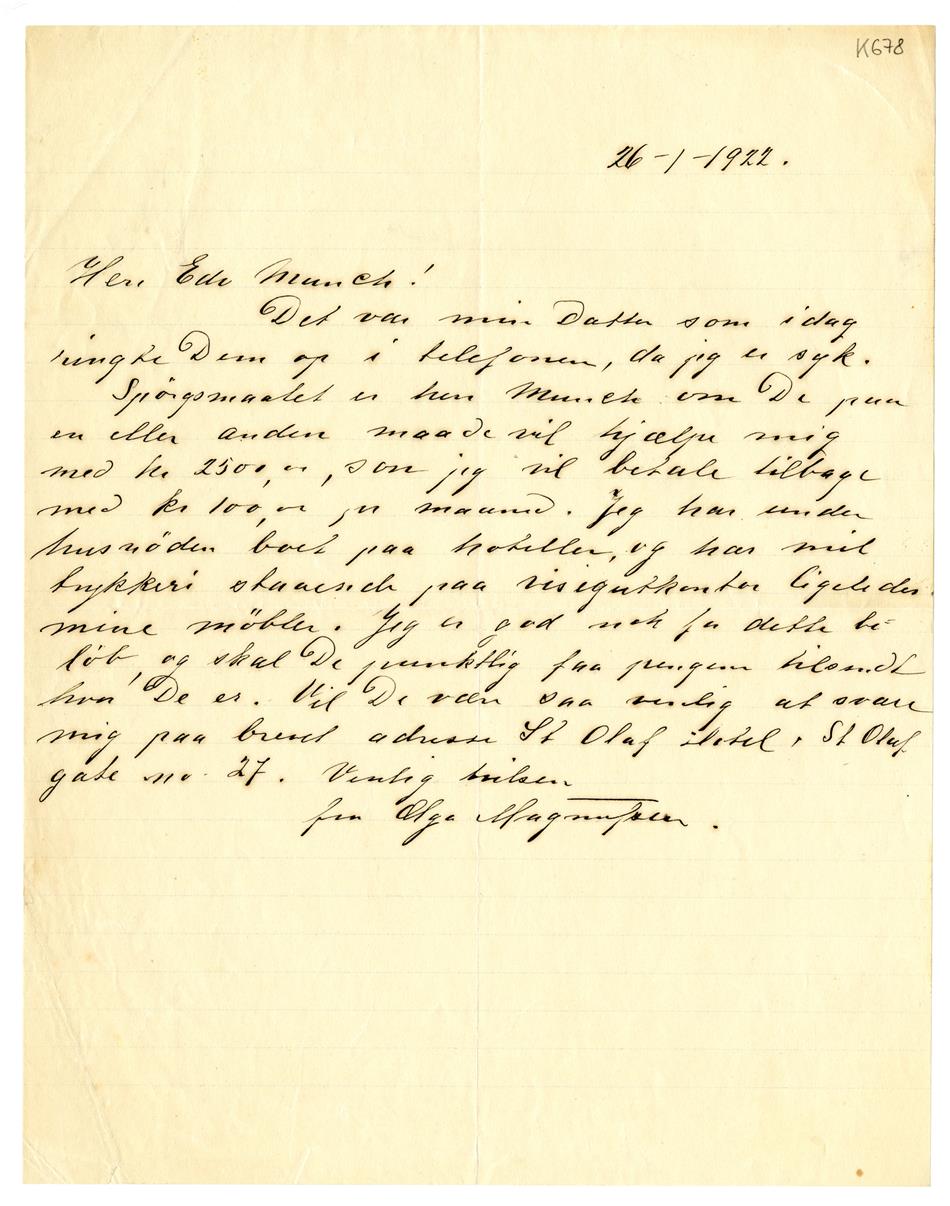 K678
26-1-1922.
Herr Edv Munch!
Det var min datter som idag
ringte Dem op i telefonen, da jeg er syk.
Spörgsmaalet er herr Munch om De paa
en eller anden maade vil hjælpe mig
med kr 2500,oo, som jeg vil betale tilbage
med kr 100,oo pr maaned. Jeg har under
husnöden boet paa hoteller, og har mit
trykkeri staaende paa visergutkontor ligeledes
mine möbler. Jeg er god nok for dette be-
löb, og skal De punktlig faa pengene tilsendt
hvor De er. Vil De være saa venlig at svare
mig paa brevet adresse St Olaf Hotel, St Olaf
gate no. 27. Venlig hilsen
fru Olga Magnussen.